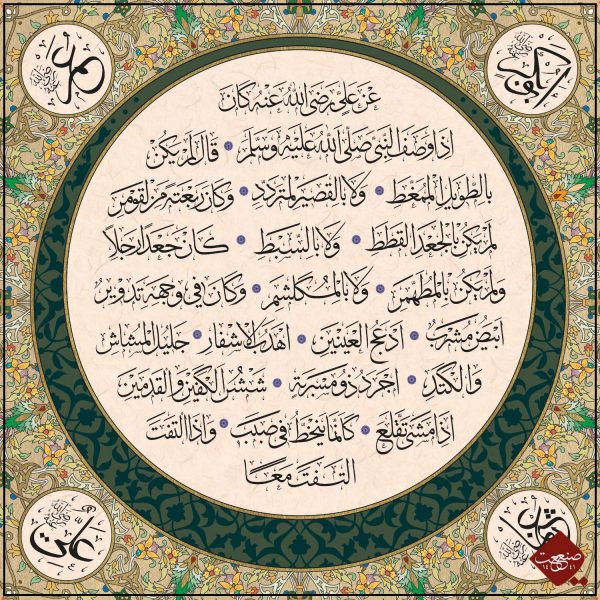 ابو بكر رضي الله عنه
عمر رضي الله عنه
عن علي رضي الله عنه كان
اذا وصف النبي صلى الله عليه وسلم • قال لم يكن
بالطويل الممغط • ولا بالقصير المتردد • وكان ربعة من القوم
لم يكن بالجعد القطط • ولا بالسبط • كان جعدا رجلا
ولم يكن بالمطهم • ولا بالمكلثم • وكان في وجهه تدوير
ابيض مشرب • ادعج العينين • اهدب الاشفار • جليل المشاش
والكتد • اجرد ذو مسربة • شثن الكفين والقدمين
اذا مشى تقلع • كانما ينحط في صبب • واذا التفت
التفت معا
علي رضي الله عنه